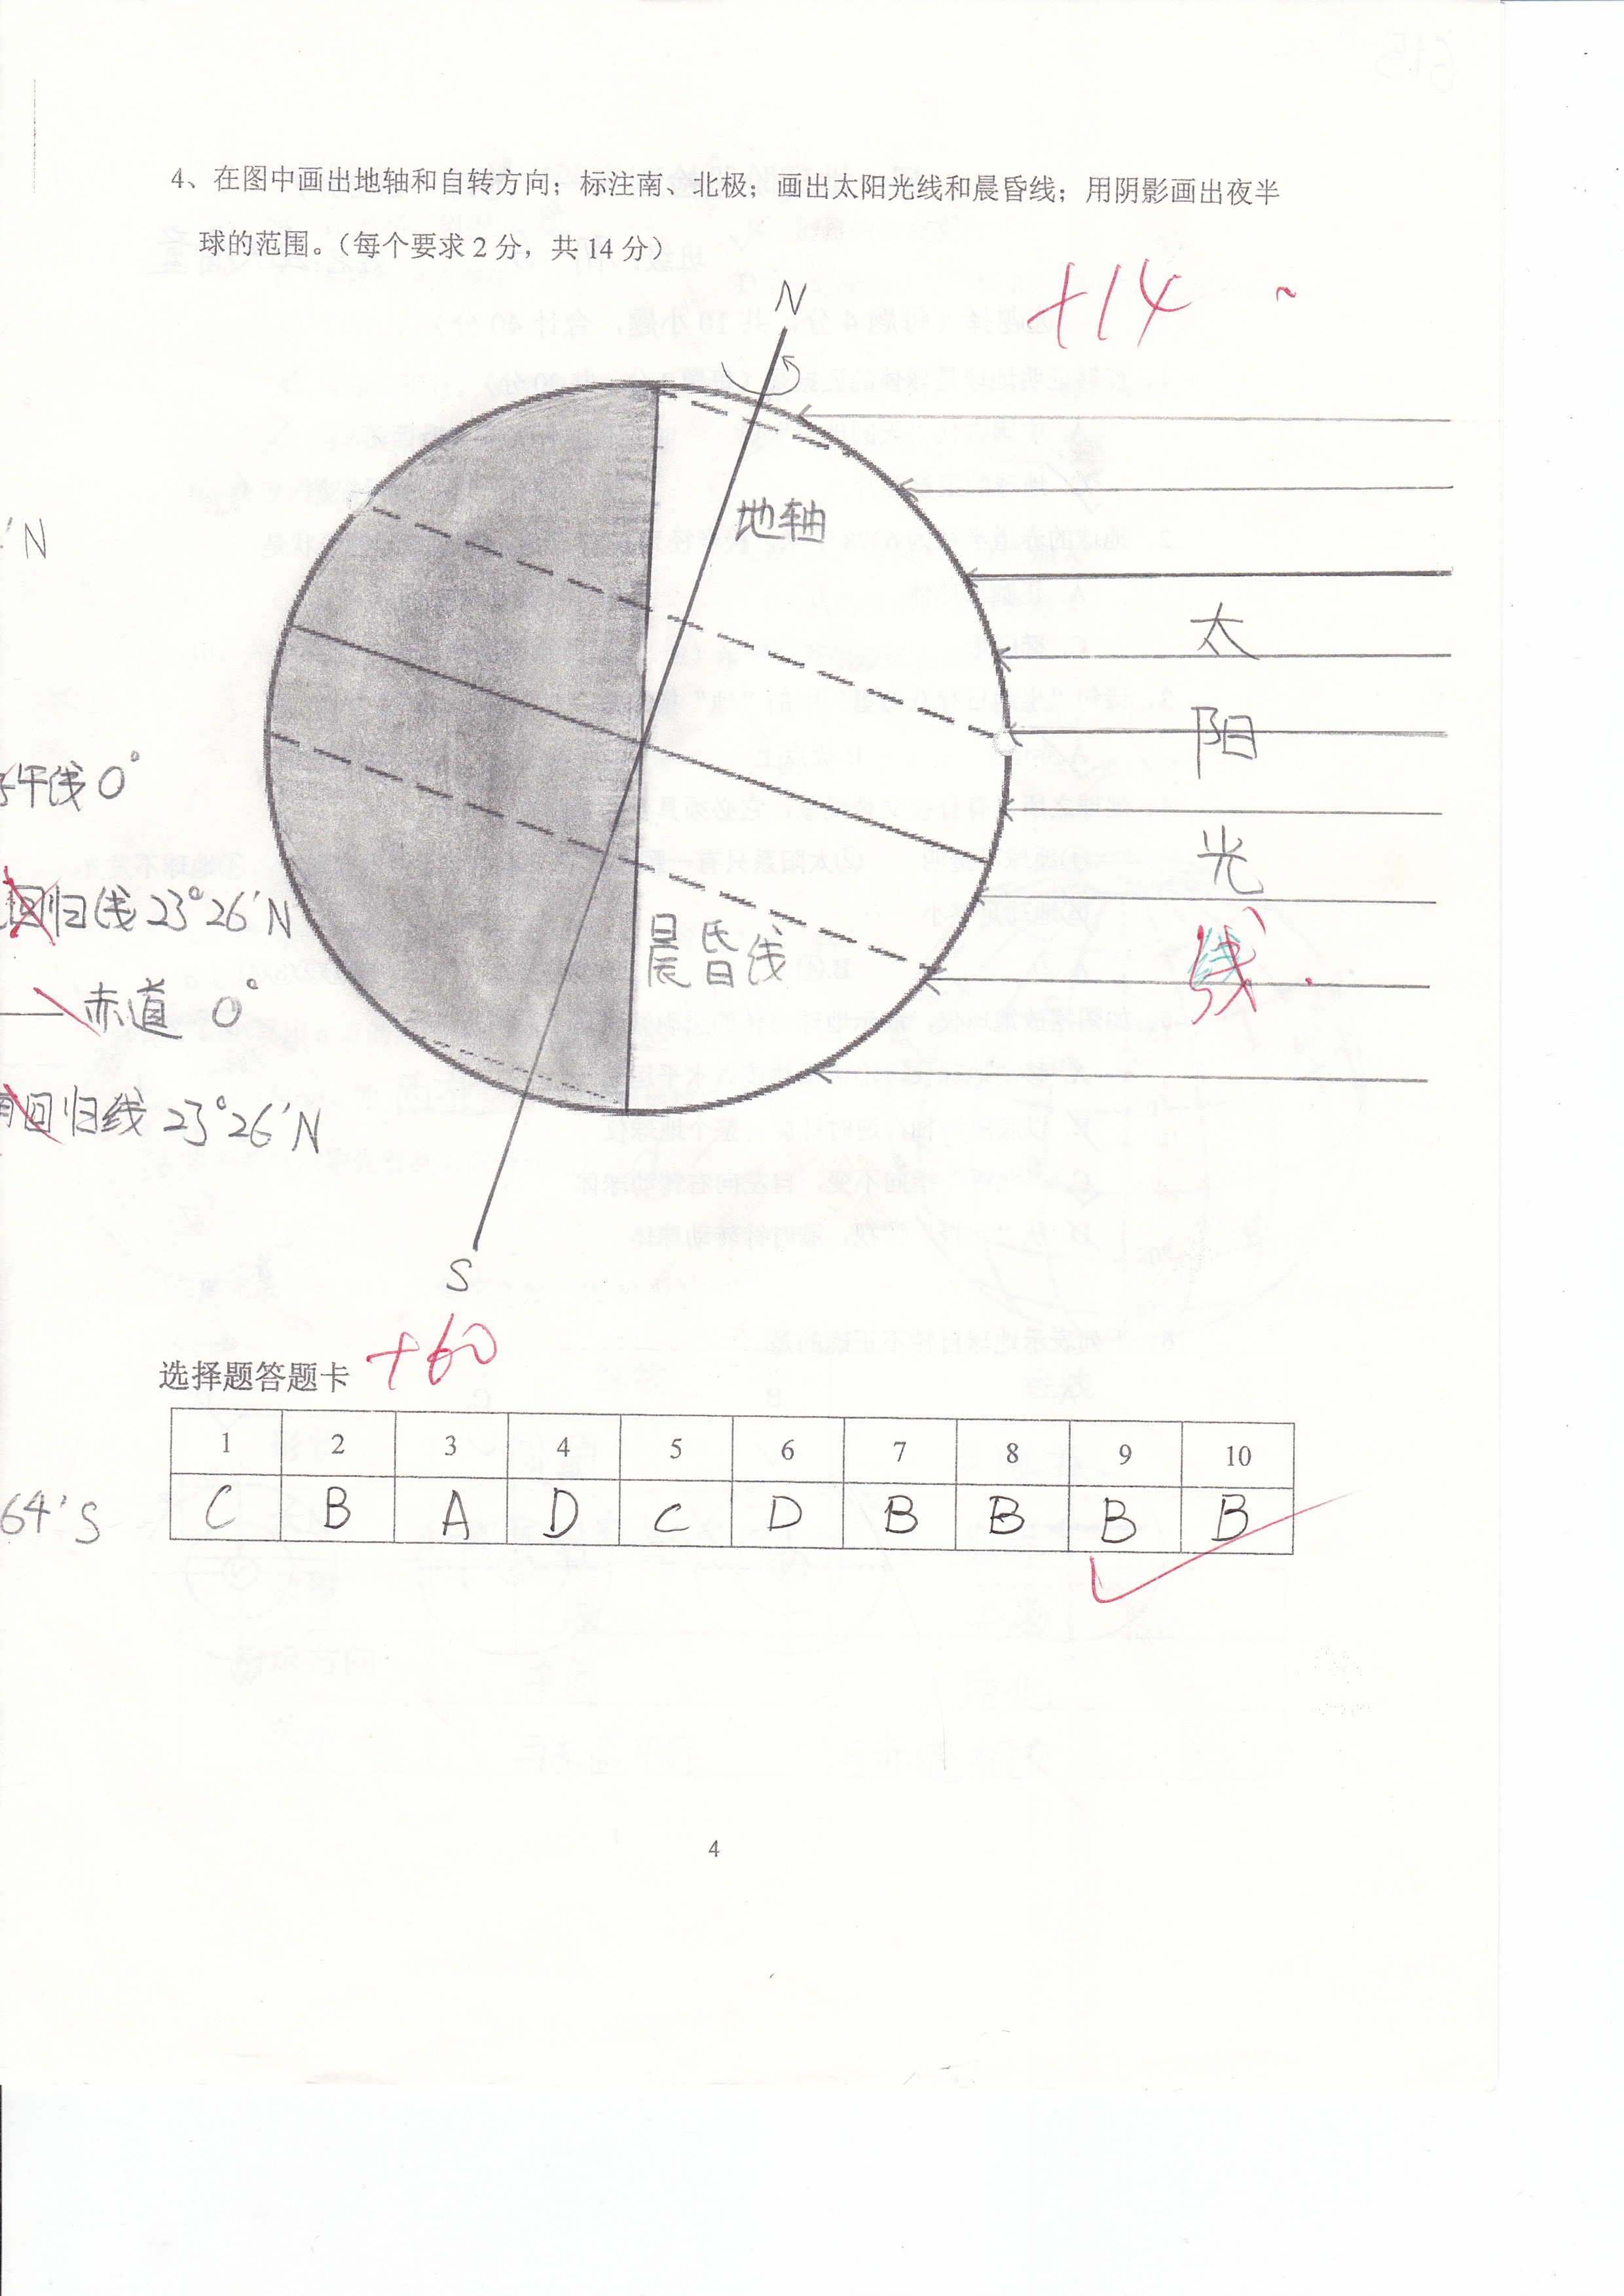 4、在图中画出地轴和自转方向；标注南、北极；画出太阳光线和晨昏线；用阴影画出夜半
球的范围。（每个要求2分，共14分）
+14
N
地轴
'N
太
阳
午线 0°
光
回归线 23°26'N
晨昏线
线
赤道 0°
回归线 23°26'N
S
+60
选择题答题卡
1 2 3 4 5 6 7 8 9 10
C B A D C D B B B B
64'S
4